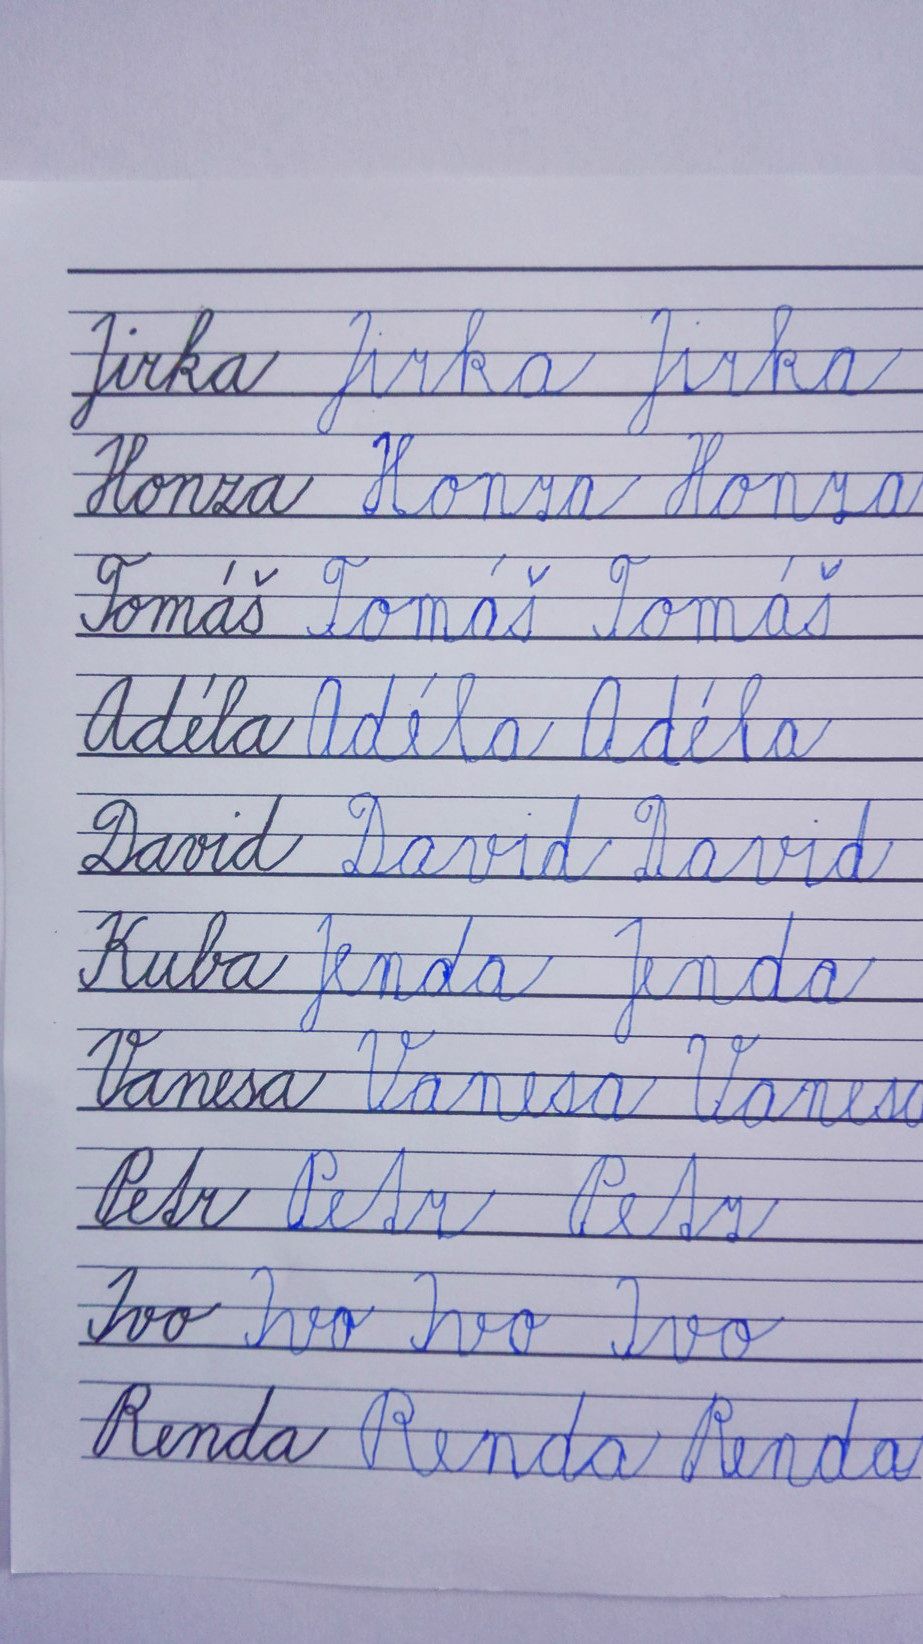 Jirka Jirka Jirka
Honza Honza Honza
Tomáš Tomáš Tomáš
Adéla Adéla Adéla
David David David
Kuba Jenda Jenda
Vanesa Vanesa Vanesa
Petr Petr Petr
Ivo Ivo Ivo Ivo
Renda Renda Renda